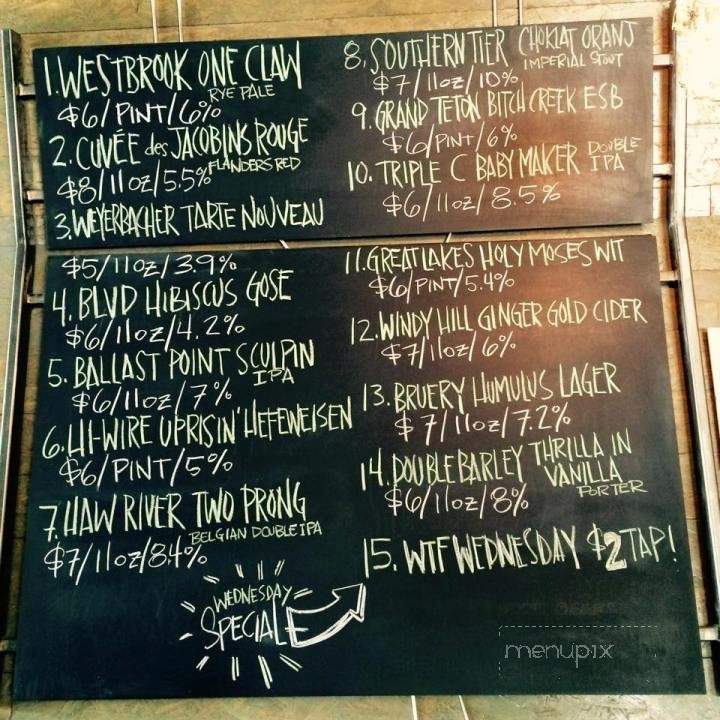 1. WESTBROOK ONE CLAW
RYE PALE
$6/PINT/6%
2. CUVÉE des JACOBINS ROUGE
FLANDERS RED
$8/11oz/5.5%
3. WEYERBACHER TARTE NOUVEAU
$5/11oz/3.9%
4. BLVD HIBISCUS GOSE
$6/11oz/4.2%
5. BALLAST POINT SCULPIN
IPA
$6/11oz/7%
6. HI-WIRE UPRISIN' HEFEWEISEN
$6/PINT/5%
7. HAW RIVER TWO PRONG
BELGIAN DOUBLE IPA
$7/11oz/8.4%
WEDNESDAY
SPECIAL
8. SOUTHERN TIER CHOKLAT ORANJ
IMPERIAL STOUT
$7/11oz/10%
9. GRAND TETON BITCH CREEK ESB
$6/PINT/6%
10. TRIPLE C BABY MAKER DOUBLE
IPA
$6/11oz/8.5%
11. GREAT LAKES HOLY MOSES WIT
$6/PINT/5.4%
12. WINDY HILL GINGER GOLD CIDER
$7/11oz/6%
13. BRUERY HUMULUS LAGER
$7/11oz/7.2%
14. DOUBLE BARLEY THRILLA IN
VANILLA
PORTER
$6/11oz/8%
15. WTF WEDNESDAY $2 TAP!
menupix